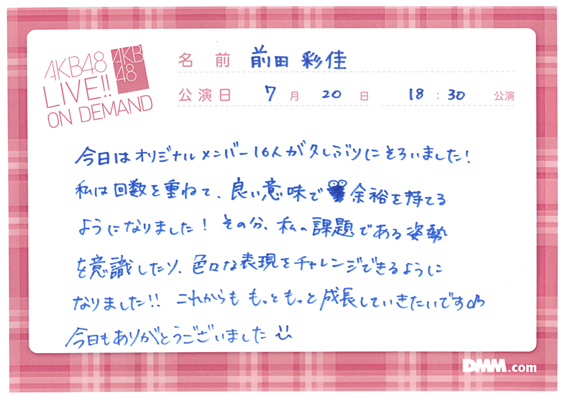 AKB48
LIVE!!
ON DEMAND
AKB
48
名前 前田彩佳
公演日 7月20日 18:30公演
今日はオリジナルメンバー16人が久しぶりにそろいました!
私は回数を重ねて、良い意味で余裕を持てる
ようになりました! その分、私の課題である姿勢
を意識したり、色々な表現をチャレンジできるように
なりました!! これからももっともっと成長していきたいです
今日もありがとうございました
DMM.com